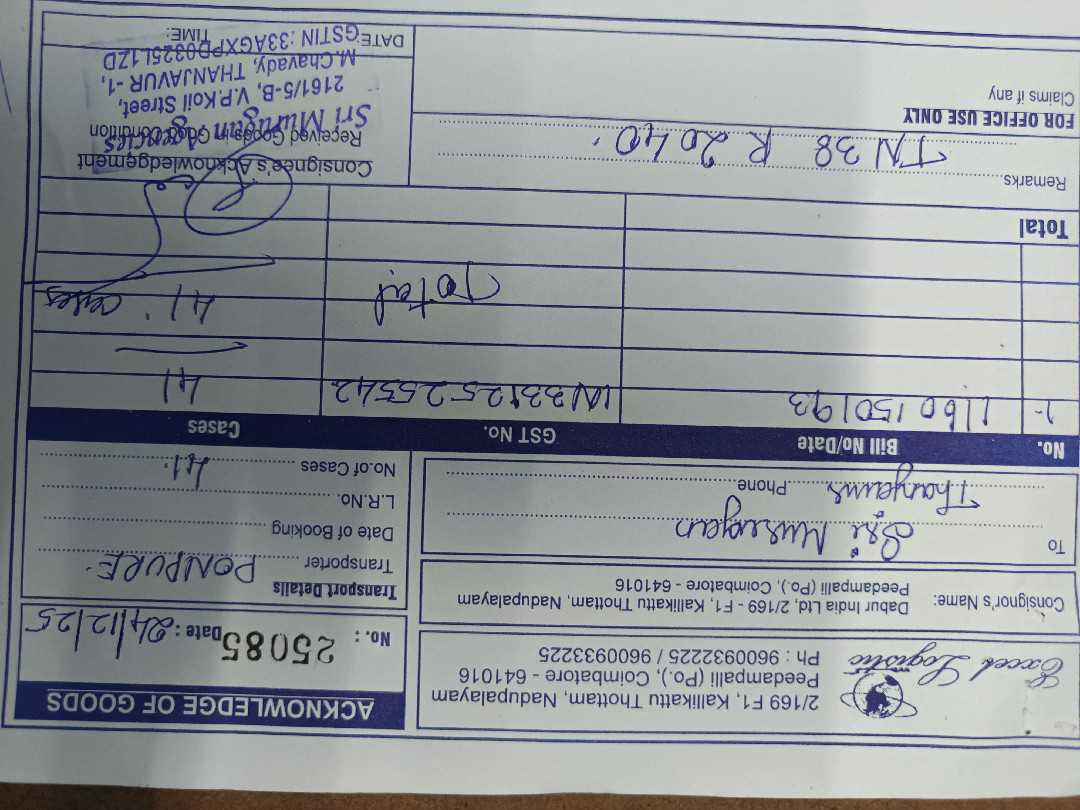 Excel Logistic
2/169 F1, Kallikattu Thottam, Nadupalayam
Peedampalli (Po.), Coimbatore - 641016
Ph : 9600932225 / 9600933225
ACKNOWLEDGE OF GOODS
No. : 25085 Date : 24/12/25
Consignor's Name: Dabur India Ltd, 2/169 - F1, Kallikattu Thottam, Nadupalayam
Peedampalli (Po.), Coimbatore - 641016
To Sri Murugan
Thanjavur Phone
Transport Details
Transporter PONPURE
Date of Booking
L.R.No.
No.of Cases 41
No. Bill No/Date GST No. Cases
1. 1160150193 LN3312525542 41
Total 41 cases
Total
Remarks
TN 38 R 2040
FOR OFFICE USE ONLY
Claims if any
Consignee's Acknowledgement
Received Goods in Good Condition
Sri Murugan Agencies
2161/5-B, V.P.Koil Street,
M.Chavady, THANJAVUR -1,
GSTIN : 33AGXPD0325L1ZD
DATE: TIME: